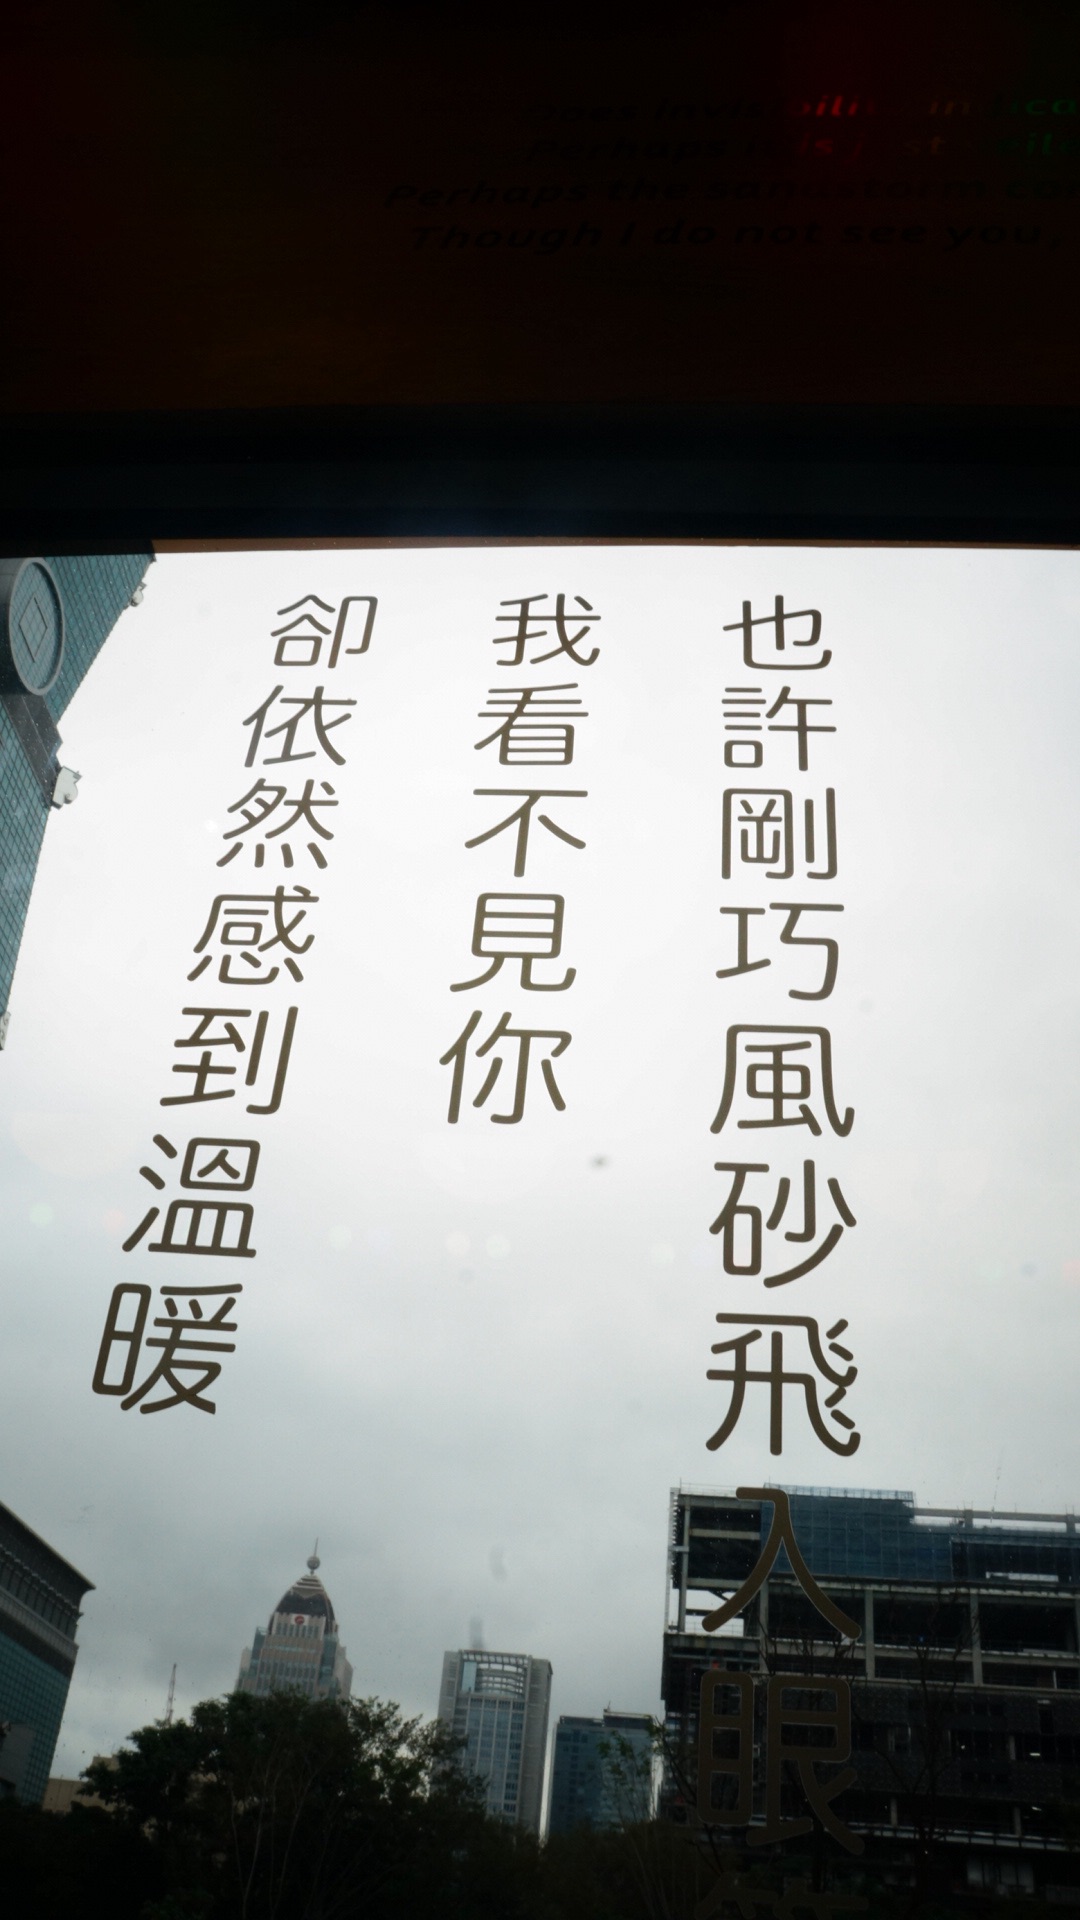 Does
Perhaps
Perhaps the sandstorm
Though I do not see you,
也許剛巧風砂飛入眼
我看不見你
卻依然感到溫暖